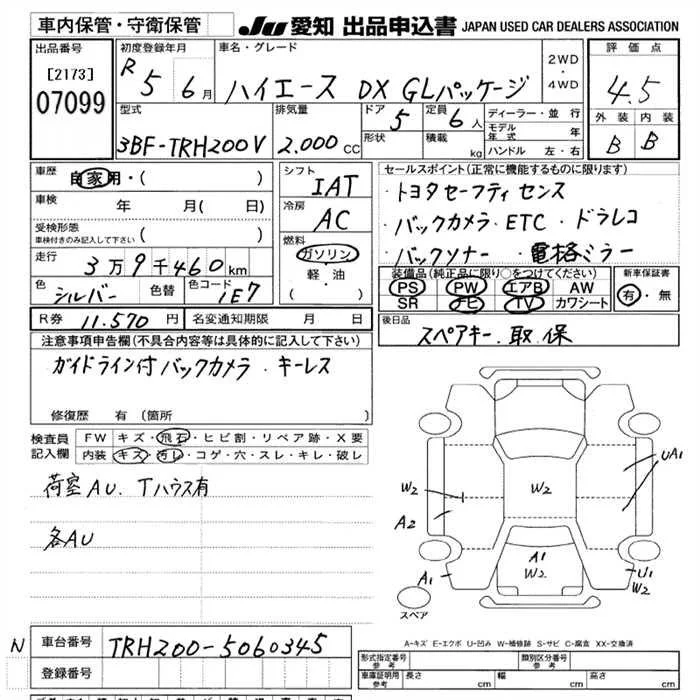 車内保管・守衛保管
JU 愛知 出品申込書 JAPAN USED CAR DEALERS ASSOCIATION
出品番号
[2173]
07099
初度登録年月
R 5 6 月
車名・グレード
ハイエース DX GLパッケージ
2WD
・
4WD
評価点
4.5
外装 内装
B B
型式
3BF-TRH200V
排気量
2.000 CC
ドア 5
形状
定員 6 人
積載 kg
ディーラー・並行
モデル年式 年
ハンドル 左・右
車歴
自家用・( )
車検 年 月( 日)
受検形態
車検付きのみ記入して下さい ( )
走行
3万9千460km
色 シルバー 色替 色コード 1E7
シフト
IAT
冷房
AC
燃料
ガソリン
・
軽油
( )
セールスポイント(正常に機能するものに限ります)
・トヨタセーフティセンス
・バックカメラ・ETC・ドラレコ
・バックソナー・電格ミラー
装備品(純正品に限り○をつけてください)
PS PW エアB AW
SR ナビ TV カワシート
新車保証書
有・無
R券 11.570 円 名変通知期限 月 日
後日品
スペアキー.取.保
注意事項申告欄(不具合内容等は具体的に記入して下さい)
ガイドライン付バックカメラ・キーレス
修復歴 有(箇所 )
検査員
記入欄
FW キズ・飛石・ヒビ割・リペア跡・X要
内装 キズ・汚レ・コゲ・穴・スレ・キレ・破レ
荷室AU. Tハウス有
各AU
W2
A2
A1
W2
A1
W2
UA1
U1
W2
スペア
A-キズ E-エクボ U-凹み W-補修跡 S-サビ C-腐食 XX-交換済
N
車台番号 TRH200-5060345
登録番号
形式指定番号
参考
類別区分番号
参考
車庫証明用
参考
長さ cm 幅 cm 高さ cm